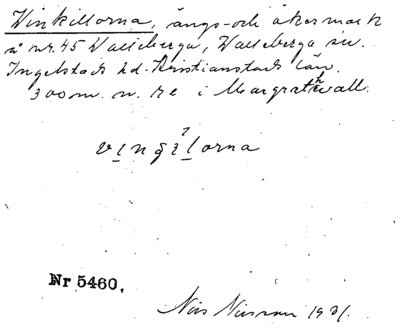 Winkillorna, ängs- och åkermark
å nr. 45 Walleberga, Walleberga sn.
Ingelstads hd. Kristianstads län.
300 m. n. re i Margrathvall.
vingilorna
Nr 5460.
Nils Nilsson 1931.